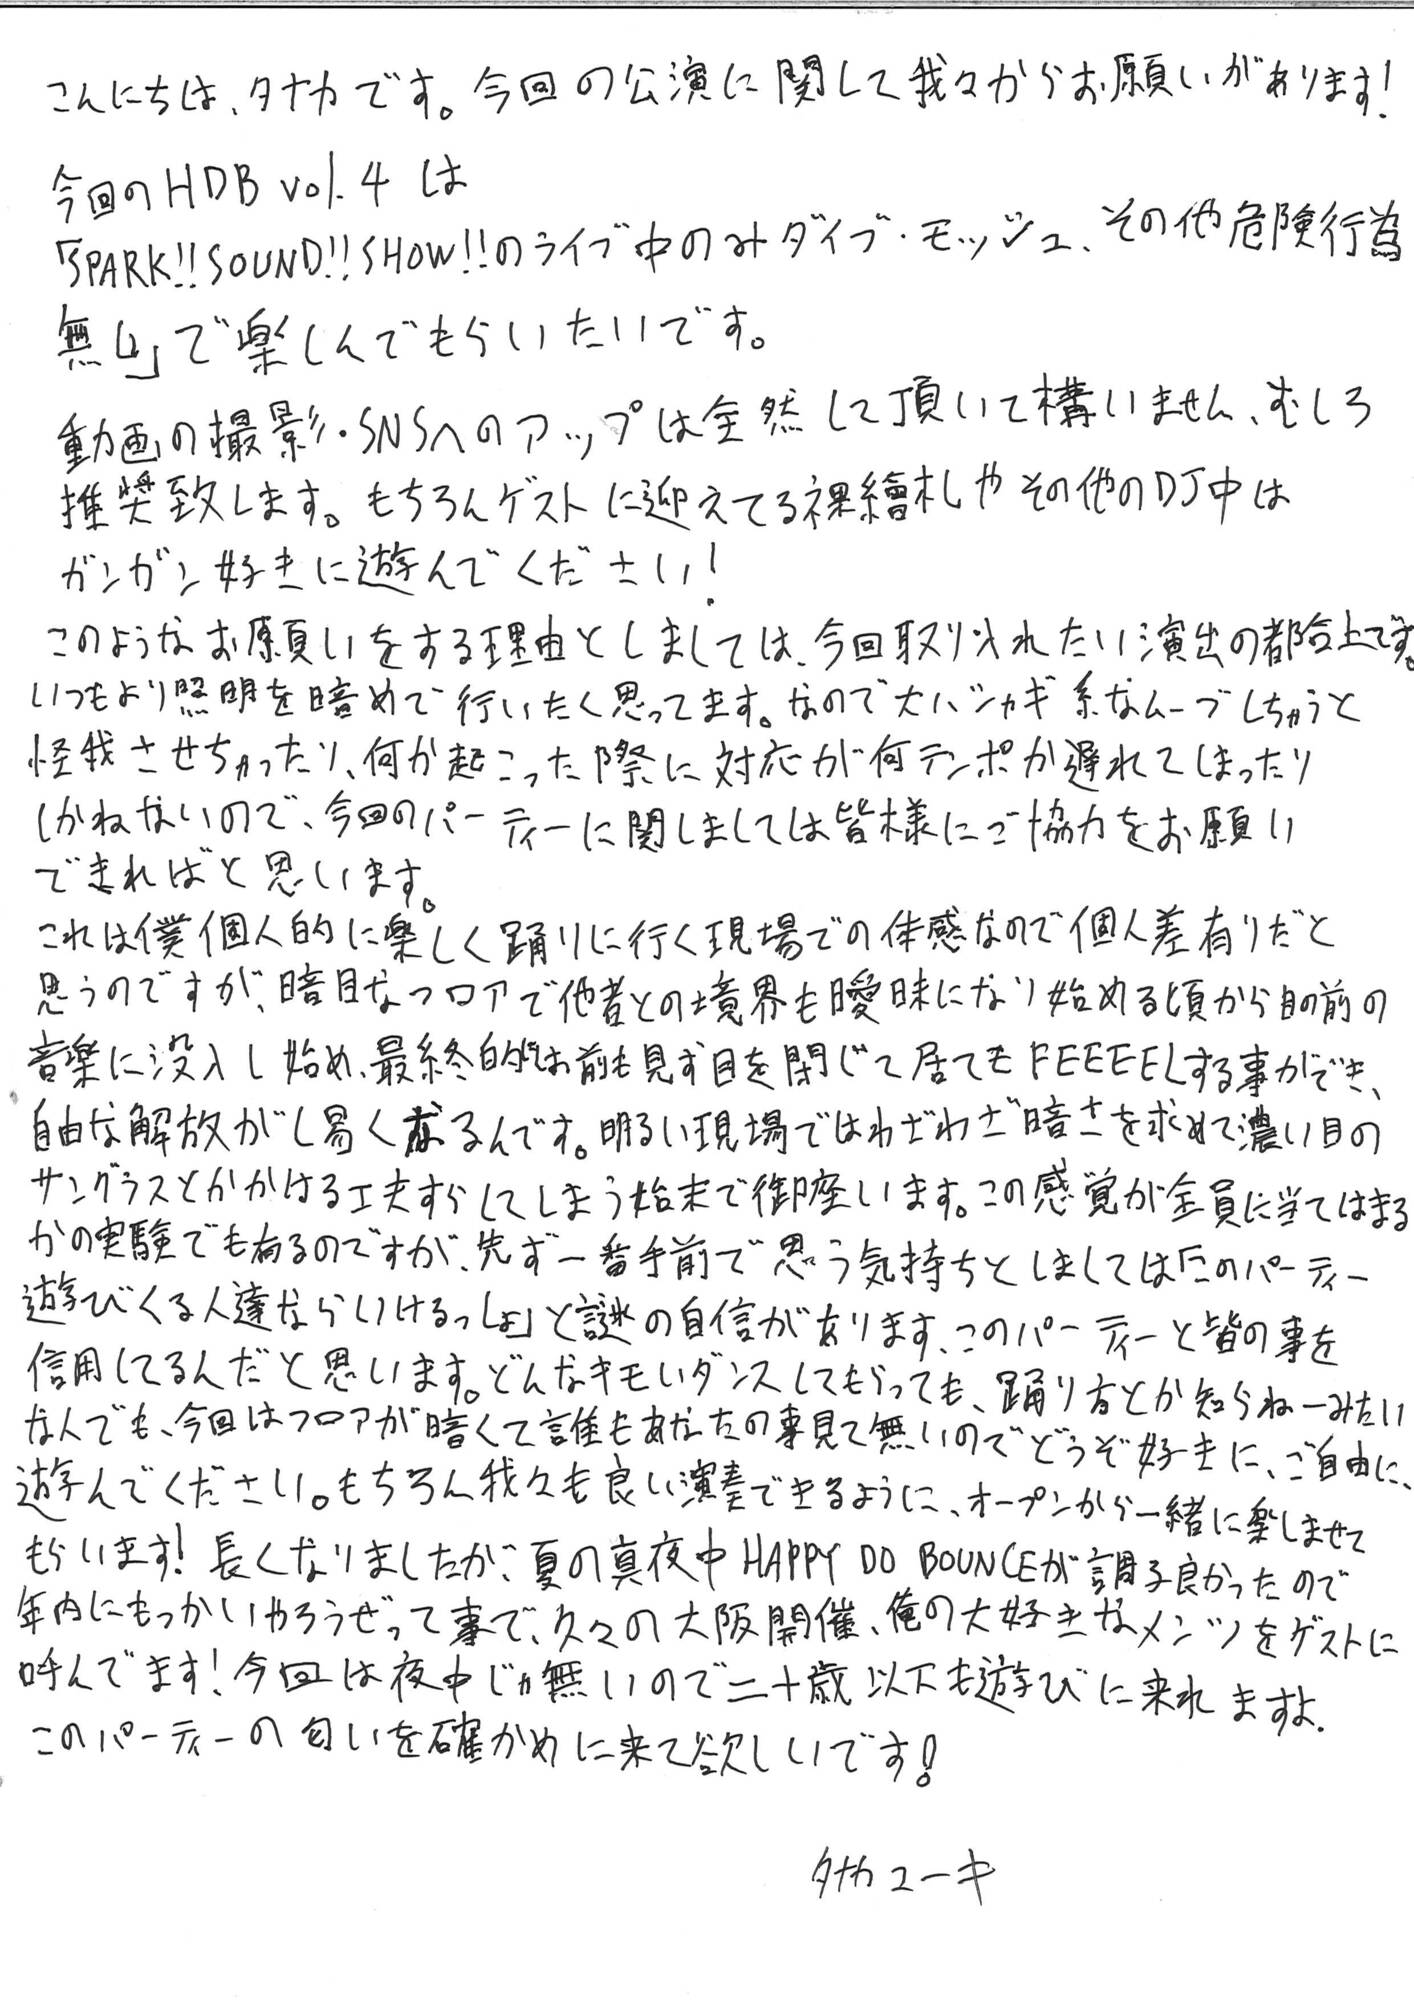 こんにちは、タナカです。今回の公演に関して我々からお願いがあります!
今回のHDB vol.4 は
「SPARK!!SOUND!!SHOW!!のライブ中のみダイブ・モッシュ、その他危険行為
無し」で楽しんでもらいたいです。
動画の撮影・SNSへのアップは全然して頂いて構いません、むしろ
推奨致します。もちろんゲストに迎えてる裸繪札やその他のDJ中は
ガンガン好きに遊んでください!
このようなお願いをする理由としましては、今回取り入れたい演出の都合上です。
いつもより照明を暗めで行いたく思ってます。なので大ハシャギ系なムーブしちゃうと
怪我させちゃったり、何か起こった際に対応が何テンポか遅れてしまったり
しかねないので、今回のパーティーに関しましては皆様にご協力をお願い
できればと思います。
これは僕個人的に楽しく踊りに行く現場での体感なので個人差有りだと
思うのですが、暗目なフロアで他者との境界も曖昧になり始める頃から目の前の
音楽に没入し始め、最終的にはお前も見ず目を閉じて居てもFEEEELする事ができ、
自由な解放がし易くなるんです。明るい現場ではわざわざ暗さを求めて濃い目の
サングラスとかかける工夫すらしてしまう始末で御座います。この感覚が全員に当てはまる
かの実験でも有るのですが、先ず一番手前で思う気持ちとしましては「このパーティー
遊びくる人達ならいけるっしょ」と謎の自信があります、このパーティーと皆の事を
信用してるんだと思います。どんなキモいダンスしてもらっても、踊り方とか知らねーみたい
な人でも、今回はフロアが暗くて誰もあなたの事見て無いのでどうぞ好きに、ご自由に、
遊んでください。もちろん我々も良い演奏できるように、オープンから一緒に楽しませて
もらいます! 長くなりましたが、夏の真夜中HAPPY DO BOUNCEが調子良かったので
年内にもっかいやろうぜって事で、久々の大阪開催、俺の大好きなメンツをゲストに
呼んでます!今回は夜中じゃ無いので二十歳以下も遊びに来れますよ.
このパーティーの匂いを確かめに来て欲しいです!
タナカユーキ